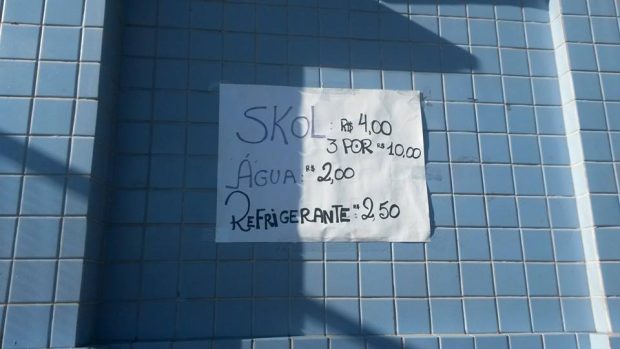 SKOL: R$ 4,00
3 POR R$ 10,00
ÁGUA: R$ 2,00
REFRIGERANTE: R$ 2,50